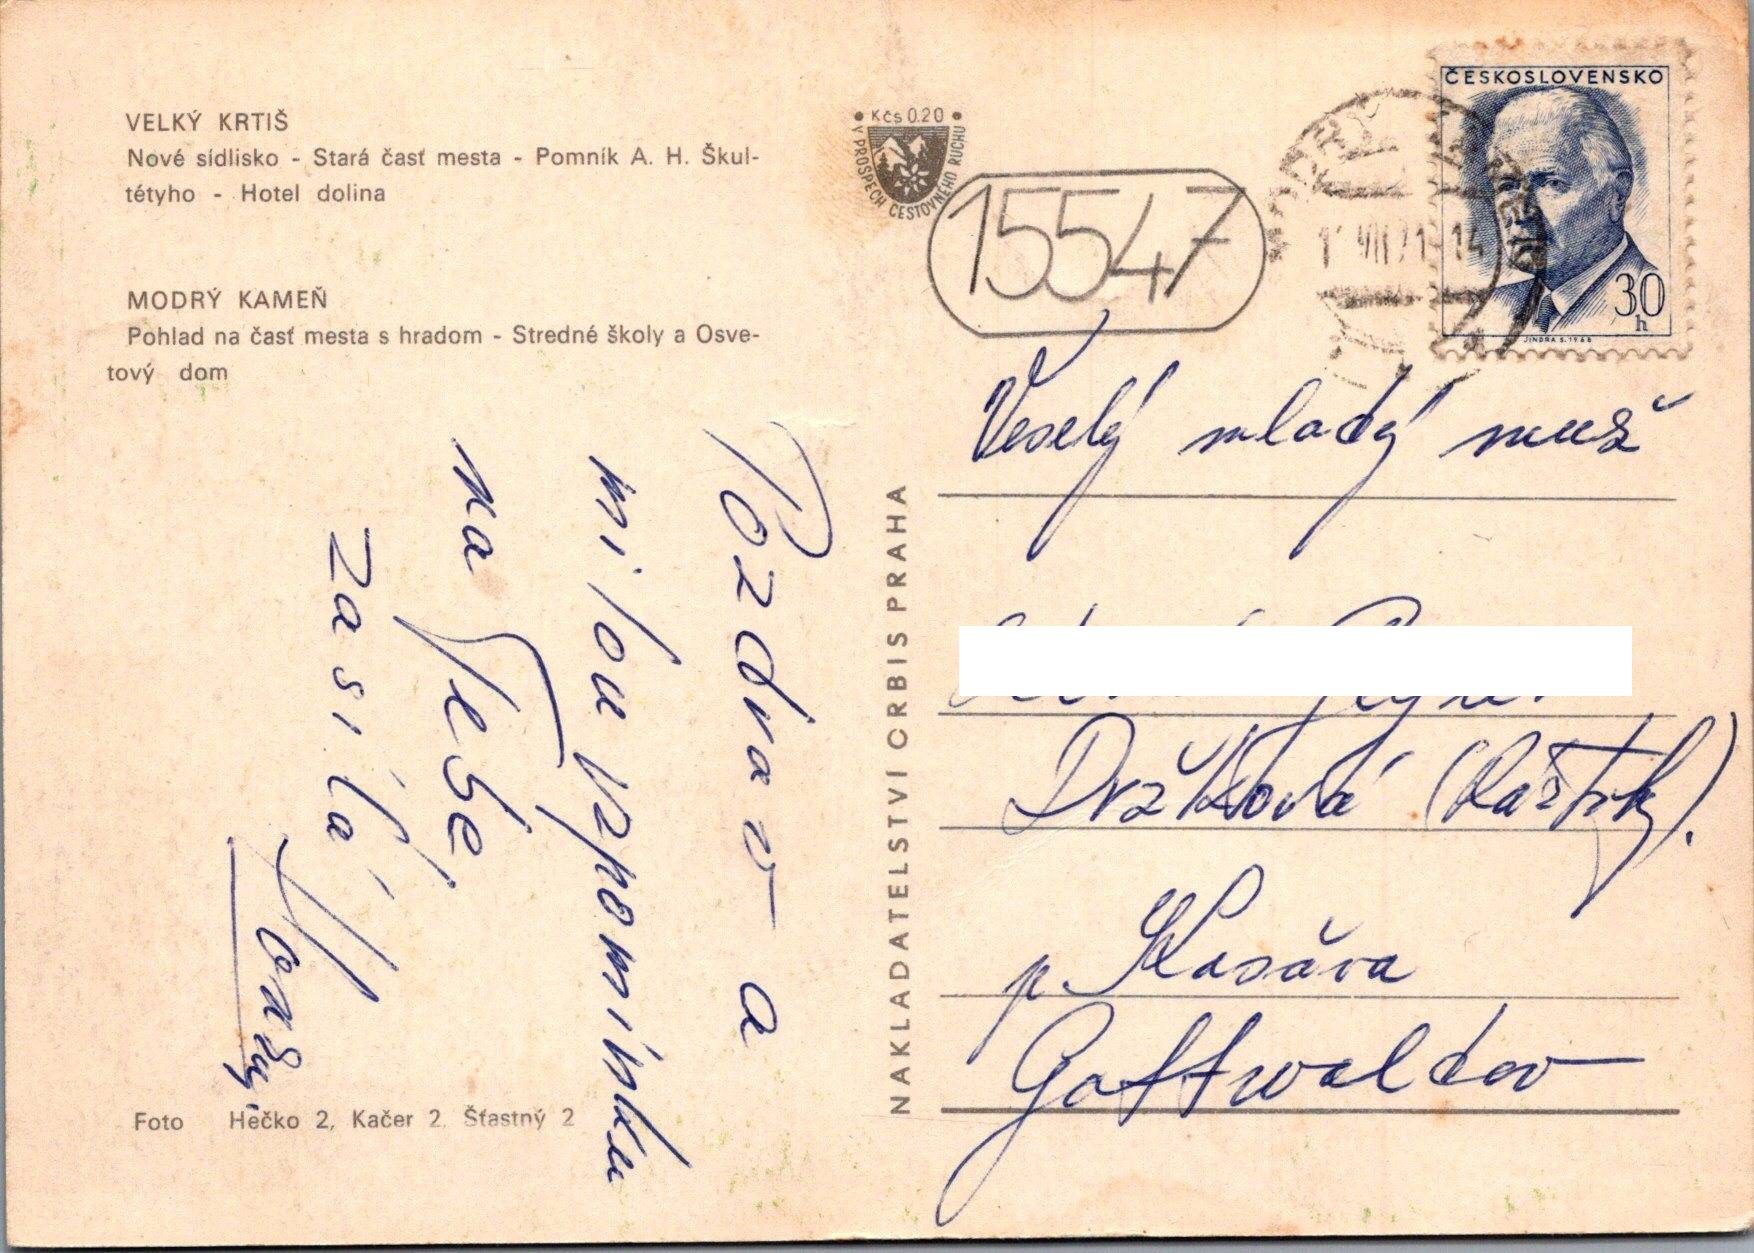 VELKÝ KRTIŠ
Nové sídlisko - Stará časť mesta - Pomník A. H. Škul-
tétyho - Hotel dolina
MODRÝ KAMEŇ
Pohlad na časť mesta s hradom - Stredné školy a Osve-
tový dom
Pozdrav a
milou vzpomínku
na Tebe
zasílá
Foto Hečko 2, Kačer 2, Šťastný 2
NAKLADATELSTVI ORBIS PRAHA
Kčs 0.20
V PROSPECH CESTOVNÉHO RUCHU
15547
ČESKOSLOVENSKO
30
h
JINDRA S. 1968
Veselý mladý muž
Držková
p. Kasáva
Gottwaldov